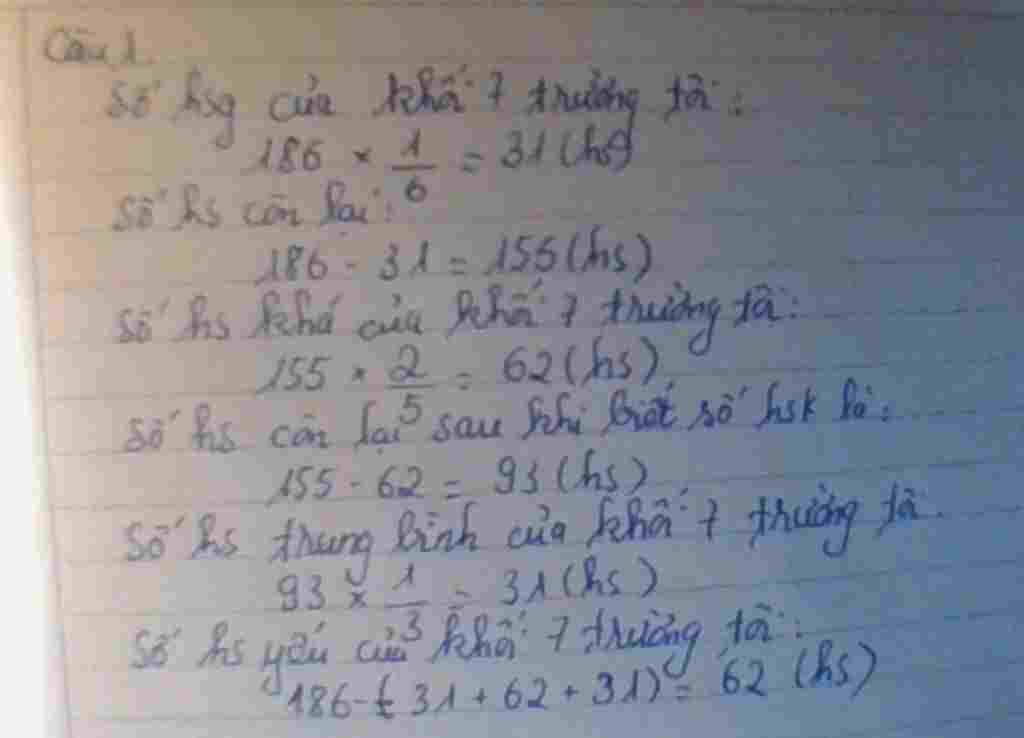 Câu 1.
Số hsg của khối 7 trường tôi:
186 × 1/6 = 31 (hs)
Số hs còn lại:
186 - 31 = 155 (hs)
Số hs khá của khối 7 trường tôi:
155 × 2/5 = 62 (hs)
Số hs còn lại sau khi biết số hsk là:
155 - 62 = 93 (hs)
Số hs trung bình của khối 7 trường tôi
93 × 1/3 = 31 (hs)
Số hs yếu của khối 7 trường tôi:
186 - (31 + 62 + 31) = 62 (hs)